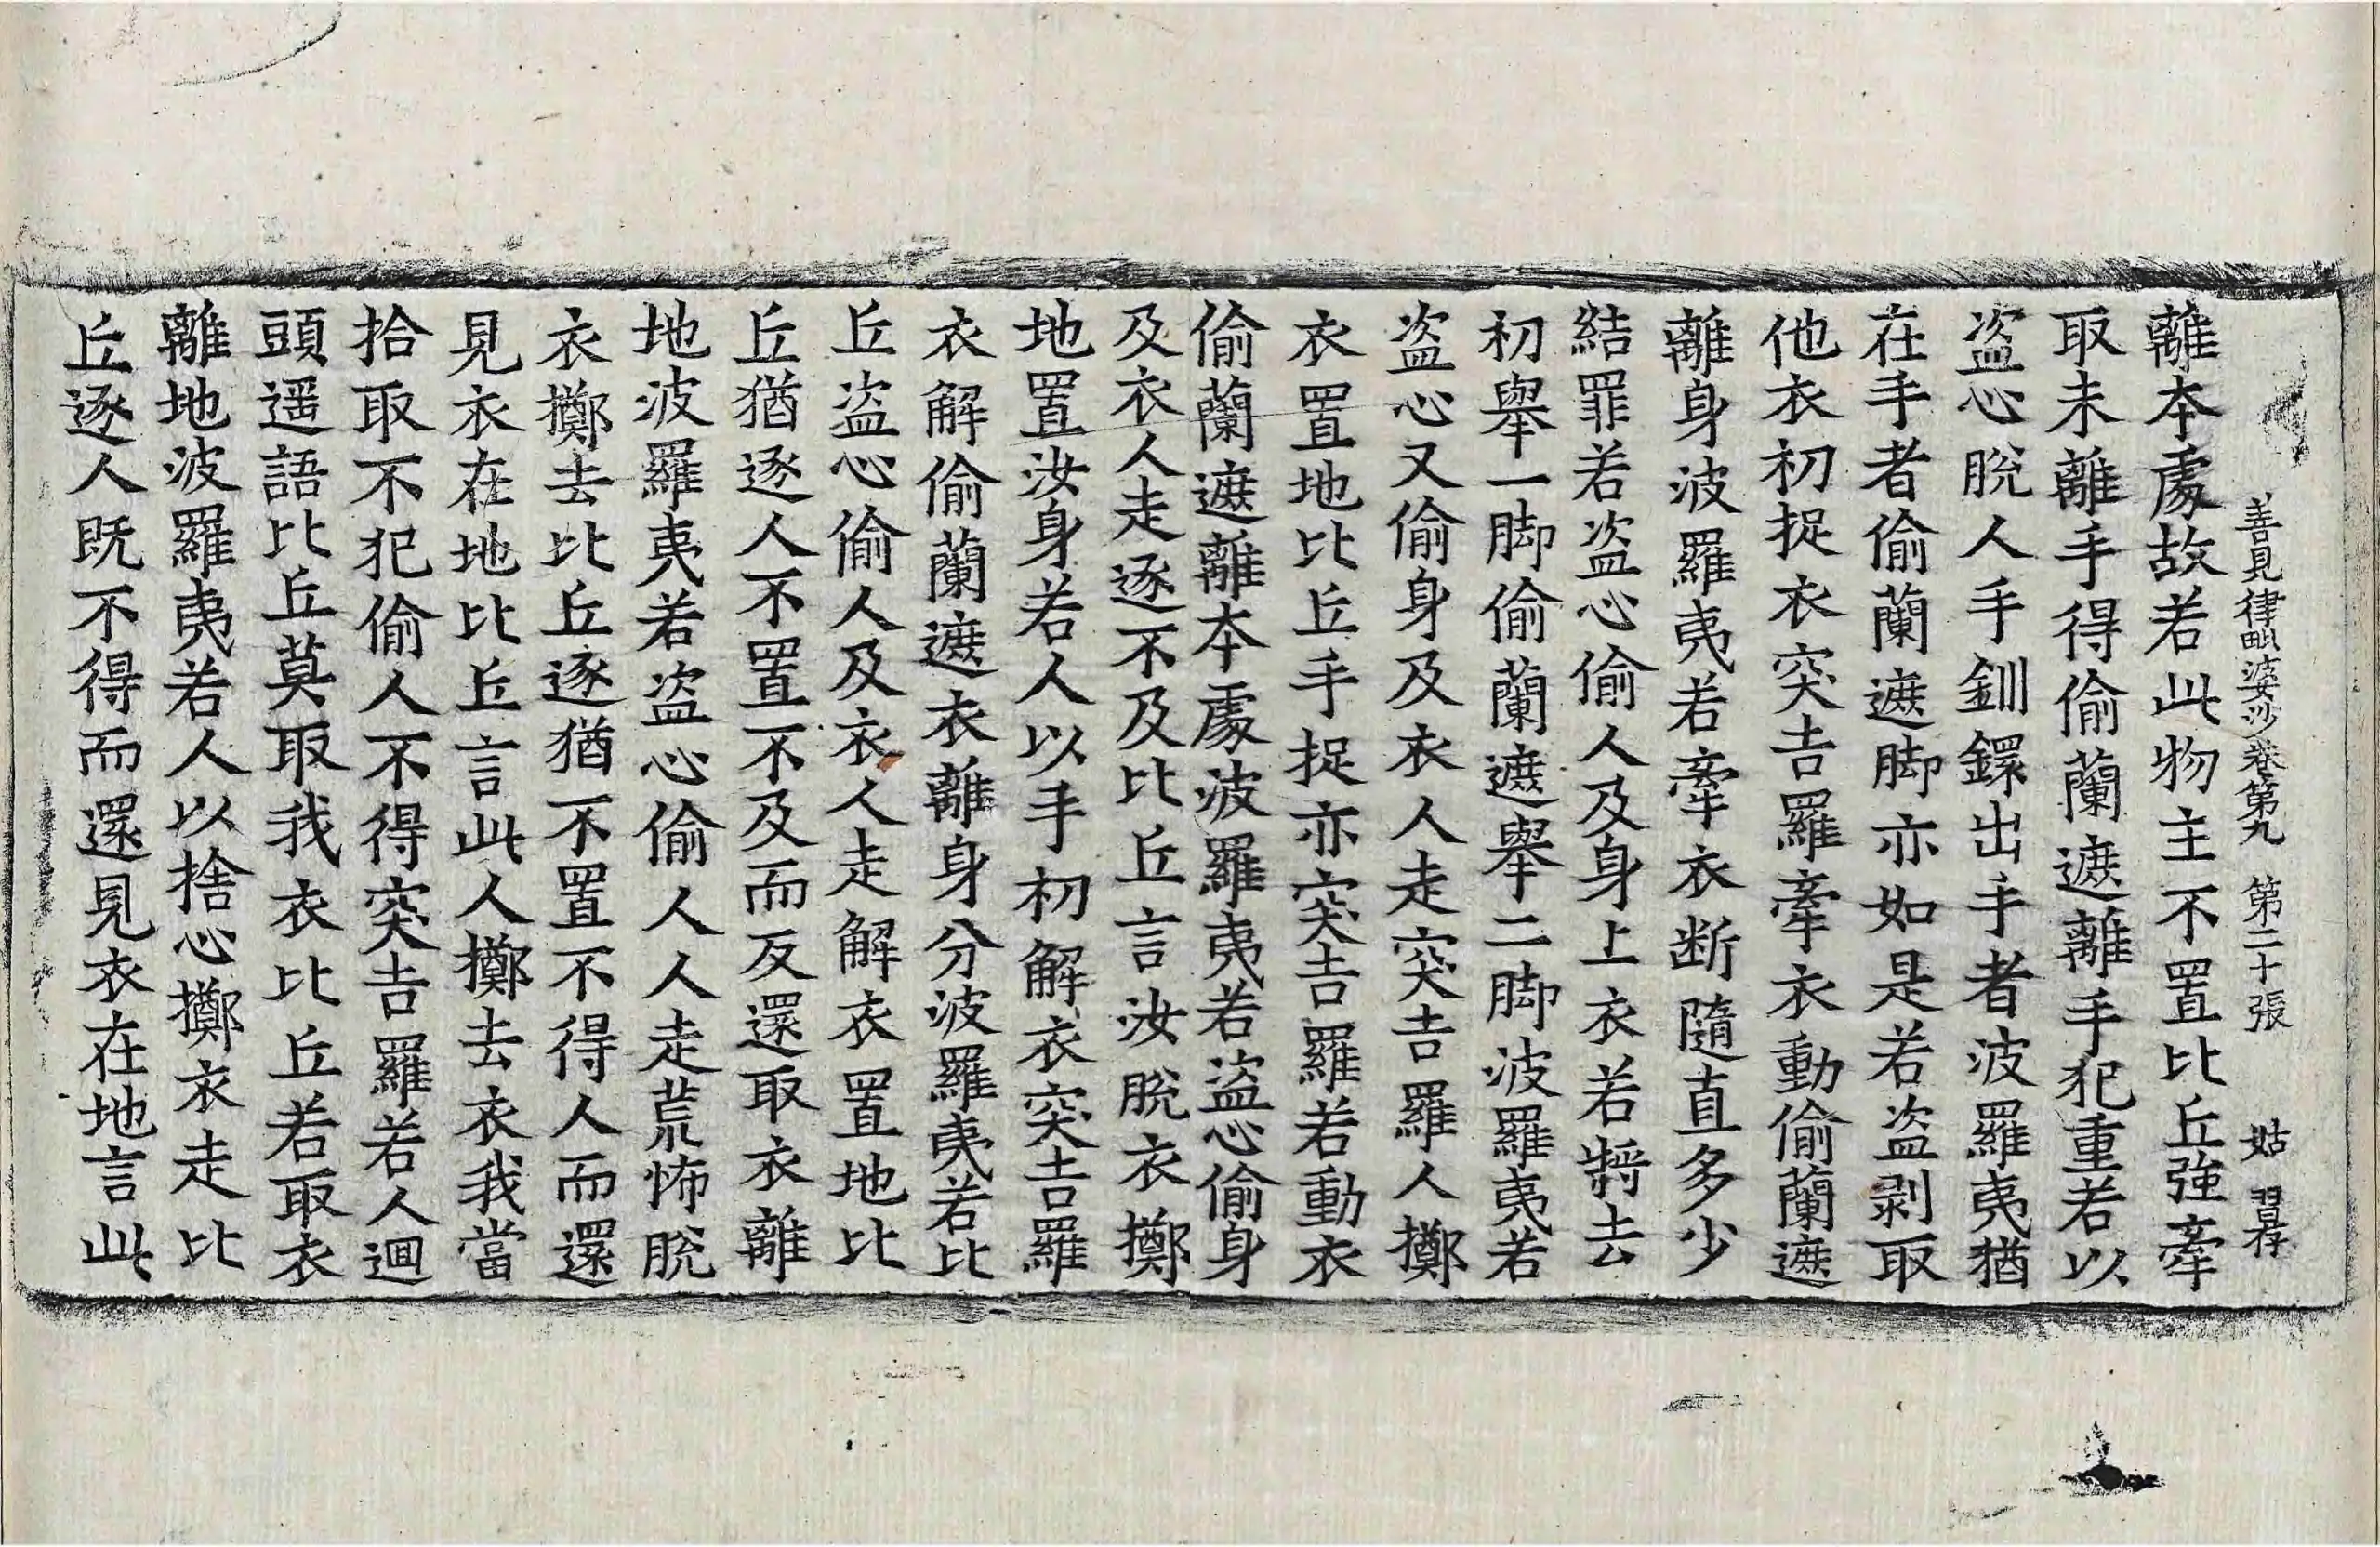 善見律毗婆沙卷第九 第二十張 姑 習存
離本處故若此物主不置比丘強牽
取未離手得偷蘭遮離手犯重若以
盜心脫人手釧鐶出手者波羅夷猶
在手者偷蘭遮脚亦如是若盜剥取
他衣初捉衣突吉羅牽衣動偷蘭遮
離身波羅夷若牽衣断隨直多少
結罪若盜心偷人及身上衣若將去
初舉一脚偷蘭遮舉二脚波羅夷若
盜心又偷身及衣人走突吉羅人擲
衣置地比丘手捉亦突吉羅若動衣
偷蘭遮離本處波羅夷若盜心偷身
及衣人走逐不及比丘言汝脫衣擲
地置汝身若人以手初解衣突吉羅
衣解偷蘭遮衣離身分波羅夷若比
丘盜心偷人及衣人走解衣置地比
丘猶逐人不置不及而反還取衣離
地波羅夷若盜心偷人人走荒怖脫
衣擲去比丘逐猶不置不得人而還
見衣在地比丘言此人擲去衣我當
拾取不犯偷人不得突吉羅若人迴
頭遥語比丘莫取我衣比丘若取衣
離地波羅夷若人以捨心擲衣走比
丘逐人既不得而還見衣在地言此